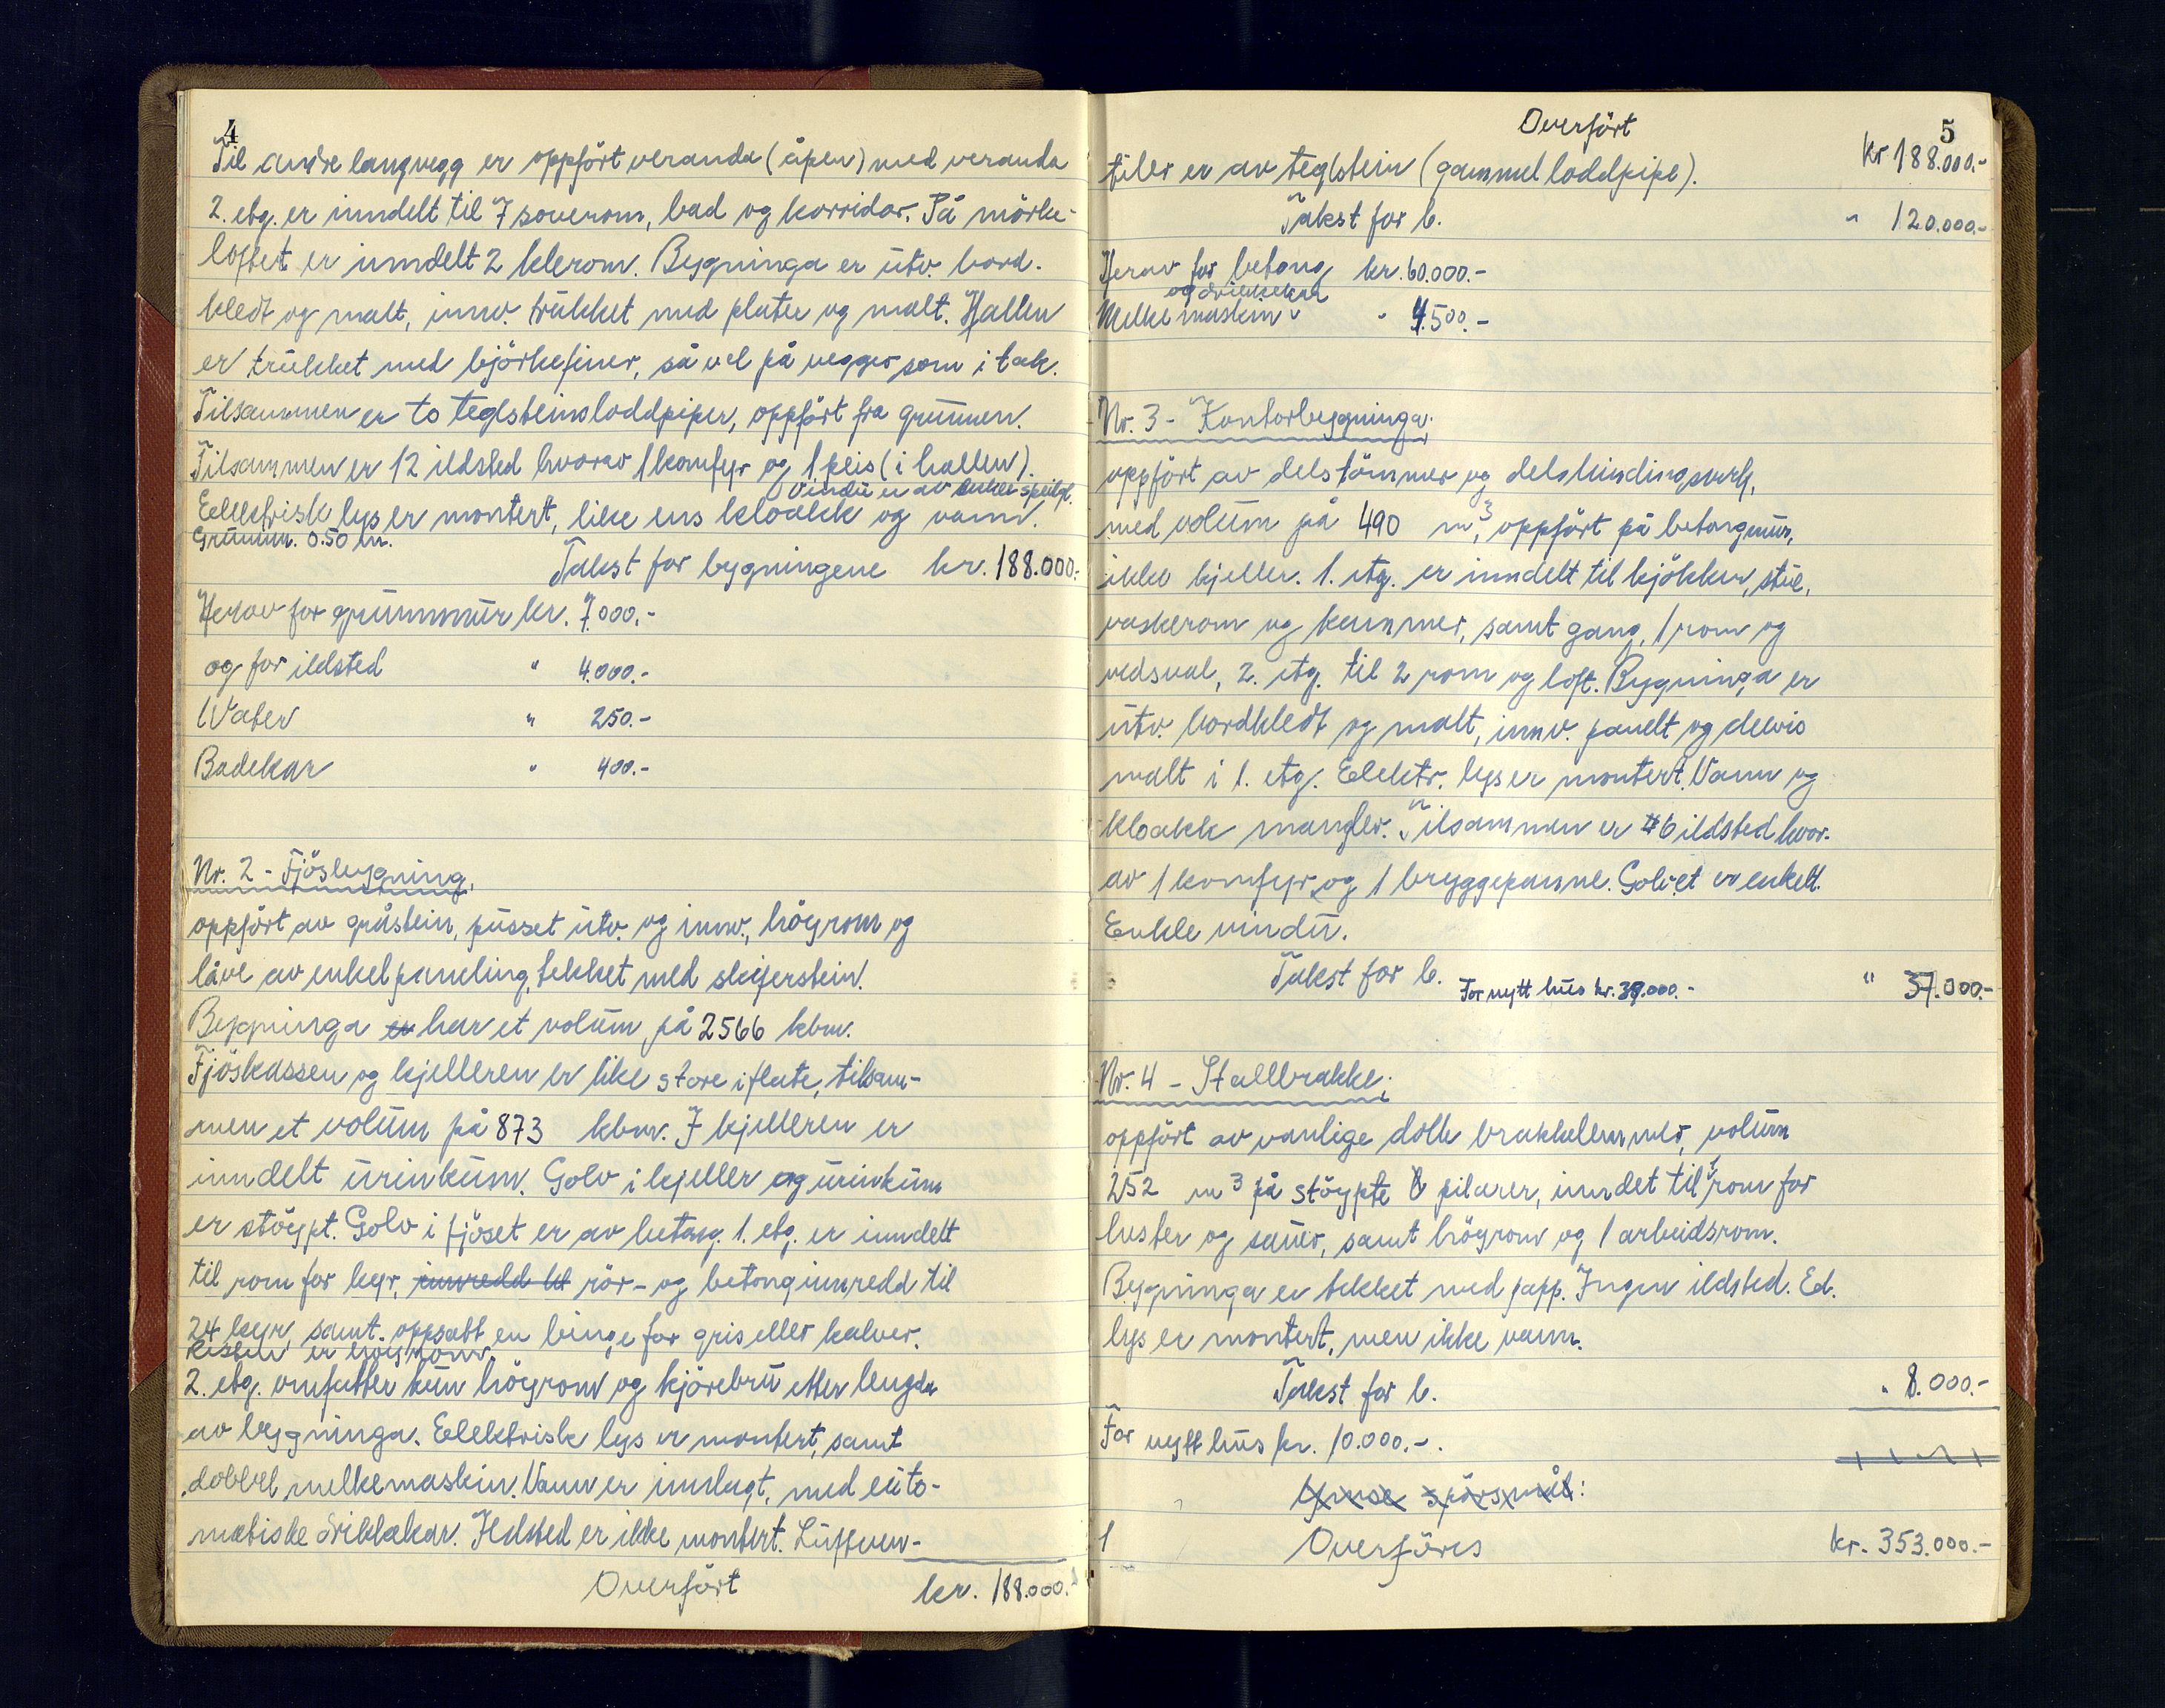 4
Til andre langvegg er oppfört veranda (åpen) med veranda
2. etg. er inndelt til 7 soverom, bad og korridor. På mörke-
loftet er inndelt 2 klerom. Bygninga er utv. bord-
kledt og malt, innv. trukket med plater og malt. Hallen
er trukket med björkefiner, så vel på vegger som i tak.
Tilsammen er to teglsteinsloddpiper, oppfört fra grunnen.
Tilsammen er 12 ildsted hvorav 1 komfyr og 1 peis (i hallen).
Vindu er av enkle speilgl.
Eelektrisk lys er montert, like ens kloakk og vann.
Grunnm. 0.50 m.
Takst for bygningene kr. 188.000.-
Herav for grunnmur kr. 7.000.-
og for ildsted " 4.000.-
Water " 250.-
Badekar " 400.-
Nr. 2 - Fjösbygning,
oppfört av gråstein, pusset utv. og innv., högrom og
låve av enkel paneling, tekket med skiferstein.
Bygninga er har et volum på 2566 kbm.
Fjöskassen og kjelleren er like store i flate, tilsam-
men et volum på 873 kbm. I kjelleren er
inndelt urinkum. Golv i kjeller og urinkum
er stöypt. Golv i fjöset er av betong. 1. etg. er inndelt
til rom for kyr, innredd til rör- og betonginnredd til
24 kyr samt oppsatt en binge for gris eller kalver.
Resten er höyrom.
2. etg. omfatter kun högrom og kjörebru etter lengda
av bygninga. Eelektrisk lys er montert, samt
dobbel melkemaskin. Vann er innlagt, med auto-
matiske drikkekar. Ildsted er ikke montert. Luftven-
Overfört kr. 188.000.-
Overfört
5
kr 188.000.-
tiler er av teglstein (gammel loddpipe).
Takst for b. " 120.000.-
Herav for betong kr. 60.000.-
og drikkekar
Melkemaskin " " 4.500.-
Nr. 3 - Kontorbygninga:
oppfört av dels tömmer og dels bindingsverk,
med volum på 490 m³, oppfört på betongmur,
ikke kjeller. 1. etg. er inndelt til kjökken, stue,
vaskerom og kammer, samt gang, 1 rom og
vedsval, 2. etg. til 2 rom og loft. Bygninga er
utv. bordkledt og malt, innv. panelt og delvis
malt i 1. etg. Eelektr. lys er montert. Vann og
kloakk mangler. Tilsammen er 6 ildsted hvor-
av 1 komfyr og 1 bryggepanne. Golvet er enkelt.
Enkle vindu.
Takst for b. For nytt hus kr. 39.000.- " 37.000.-
Nr. 4 - Stallbrakke.
oppfört av vanlige dolle brakkelemmer, volum
252 m³ på stöypte pilarer, inndet til 1 rom for
hester og sauer, samt högrom og 1 arbeidsrom.
Bygninga er tekket med papp. Ingen ildsted. El.
lys er montert, men ikke vann.
Takst for b. " 8.000.-
For nytt hus kr. 10.000.-.
Ymse spörsmål:
1 Overföres kr. 353.000.-